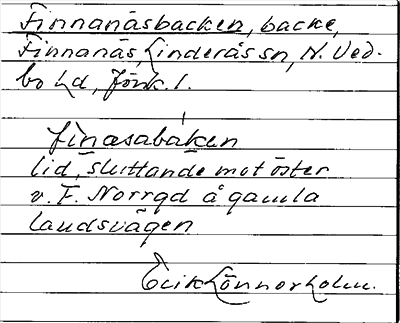 Finnanäsbacken, backe,
Finnanäs, Linderås sn, N. Ved-
bo hd, Jönk. l.
finasabaken
lid, sluttande mot öster
v. F. Norrgd å gamla
landsvägen
Erik Lönnerholm.